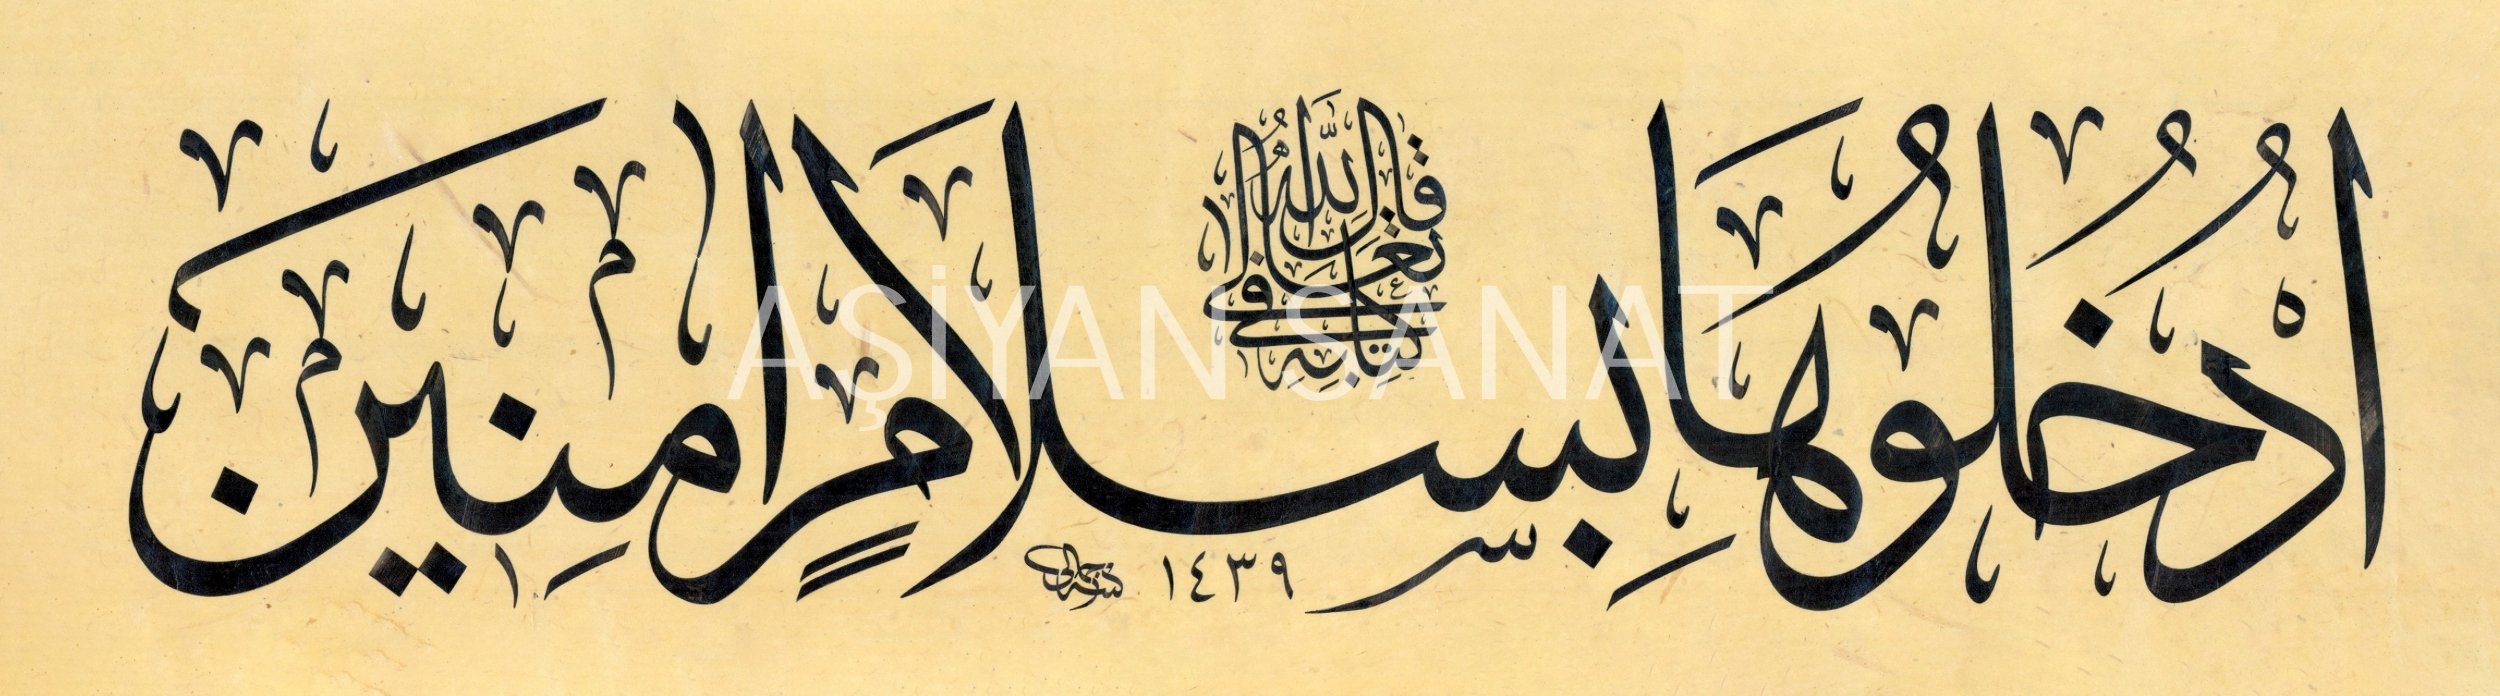 قال الله تعالى في كتابه
ادْخُلُوهَا بِسَلَامٍ اٰمِنِينَ
١٤٣٩
AŞİYAN SANAT